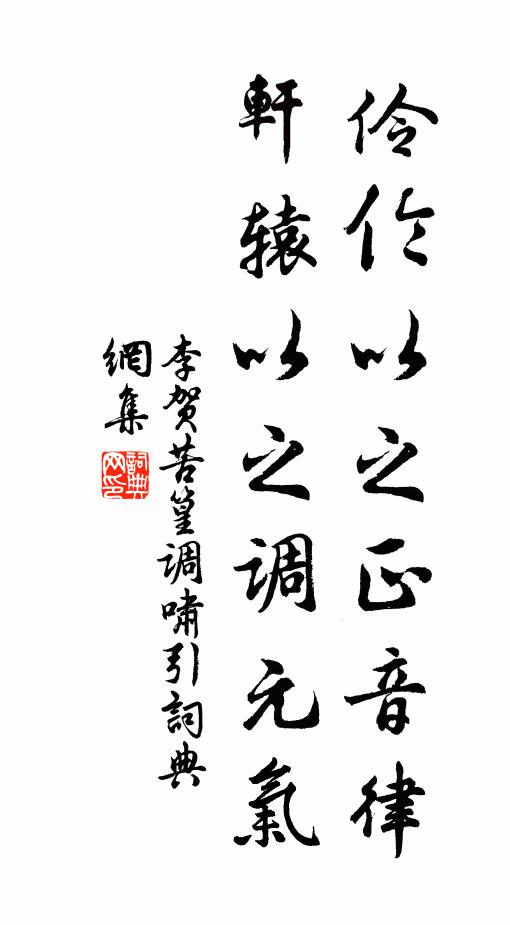 伶伦以之正音律
軒辕以之调元氣
李贺苦篁调啸引詞典
網集
詞典网印